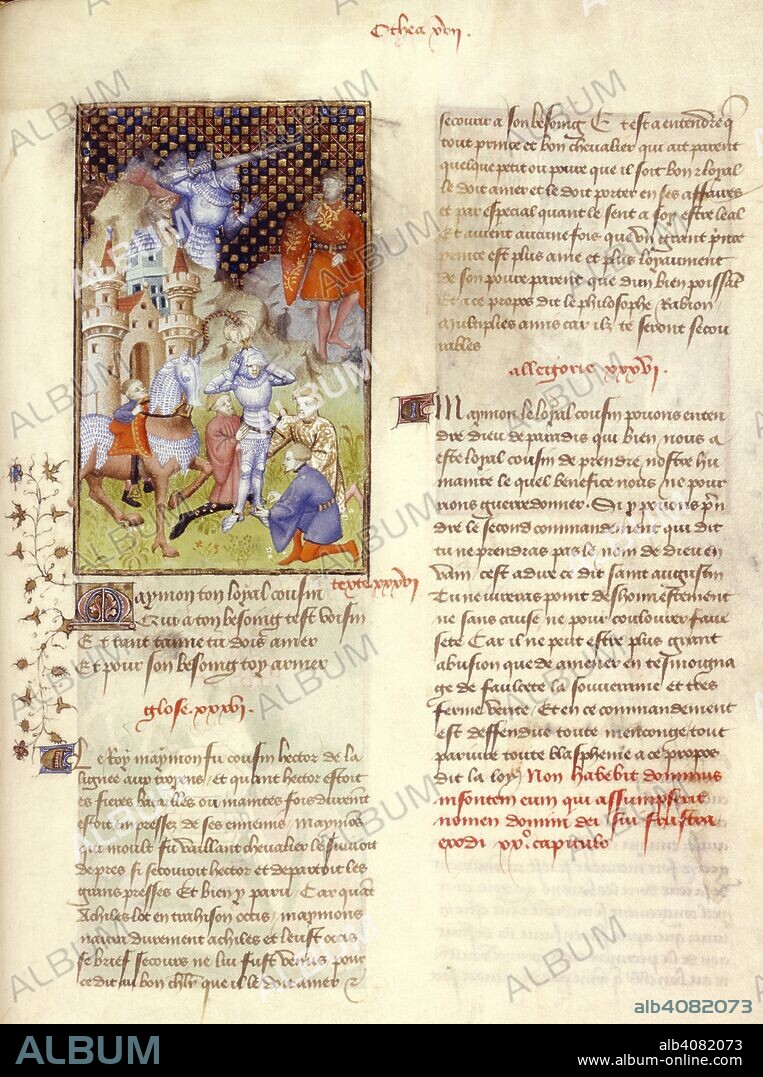 Othea xvii.
texte xxxvi
Maymon ton loyal cousin
Qui a ton besoing test voisin
Et tant taime tu dois amer
Et pour son besoing toy armer
glose .xxxvi.
Le Roy maymon fu cousin hector de la
lignee aux troyens / et quant hector estoit
es fieres batailles ou maintes fois durement
estoit empressez de ses ennemis / maymon
qui moult fu vaillant chevalier le suivoit
de pres si secouroit hector et departoit les
grans presses Et bien y paru / Car quant
Achiles lot en trahison occis / maymons
navra durement achiles et leust occis
se brief secours ne lui fust venus pour
ce dit au bon chlr que il le doit amer &
secourir a son besoing Et est a entendre q
tout prince et bon chevalier qui ait parent
quelque petit ou povre que il soit bon & loyal
le doit amer et le doit porter en ses affaires
et par especial quant le sent a soy estre leal
Et avient aucune fois que un grant
prince est plus ame et plus loyaument
de son povre parent que dun bien poissat
Et a ce propos dit le philosophe / Rabion
Multiplies amis car ilz te seront secou
rables
allegorie xxxvi.
Maymon le loyal cousin pouons enten
dre dieu de paradis qui bien nous a
este loyal cousin de prendre nostre hu
manite le quel benefice nous ne pour
rions guerredonner. Si y pouons pren
dre le second commandement qui dit
tu ne prendras pas le nom de dieu en
vain / cest a dire ce dit saint augustin
Tu ne iureras point deshonnestement
ne sans cause ne pour coulourer faus
sete Car il ne peut estre plus grant
abusion que de amener en tesmoigna
ge de faulcete la souveraine et tres
ferme verite / Et en ce commandement
est deffendue toute menconge tout
pariure toute blaspheme a ce propos
dit la loy / Non habebit dominus
insontem eum qui assumpserit
nomen domini dei sui frustra
exodi xxo. capitulo
ALBUM
alb4082073
ALBUM
alb4082073
www.album-online.com